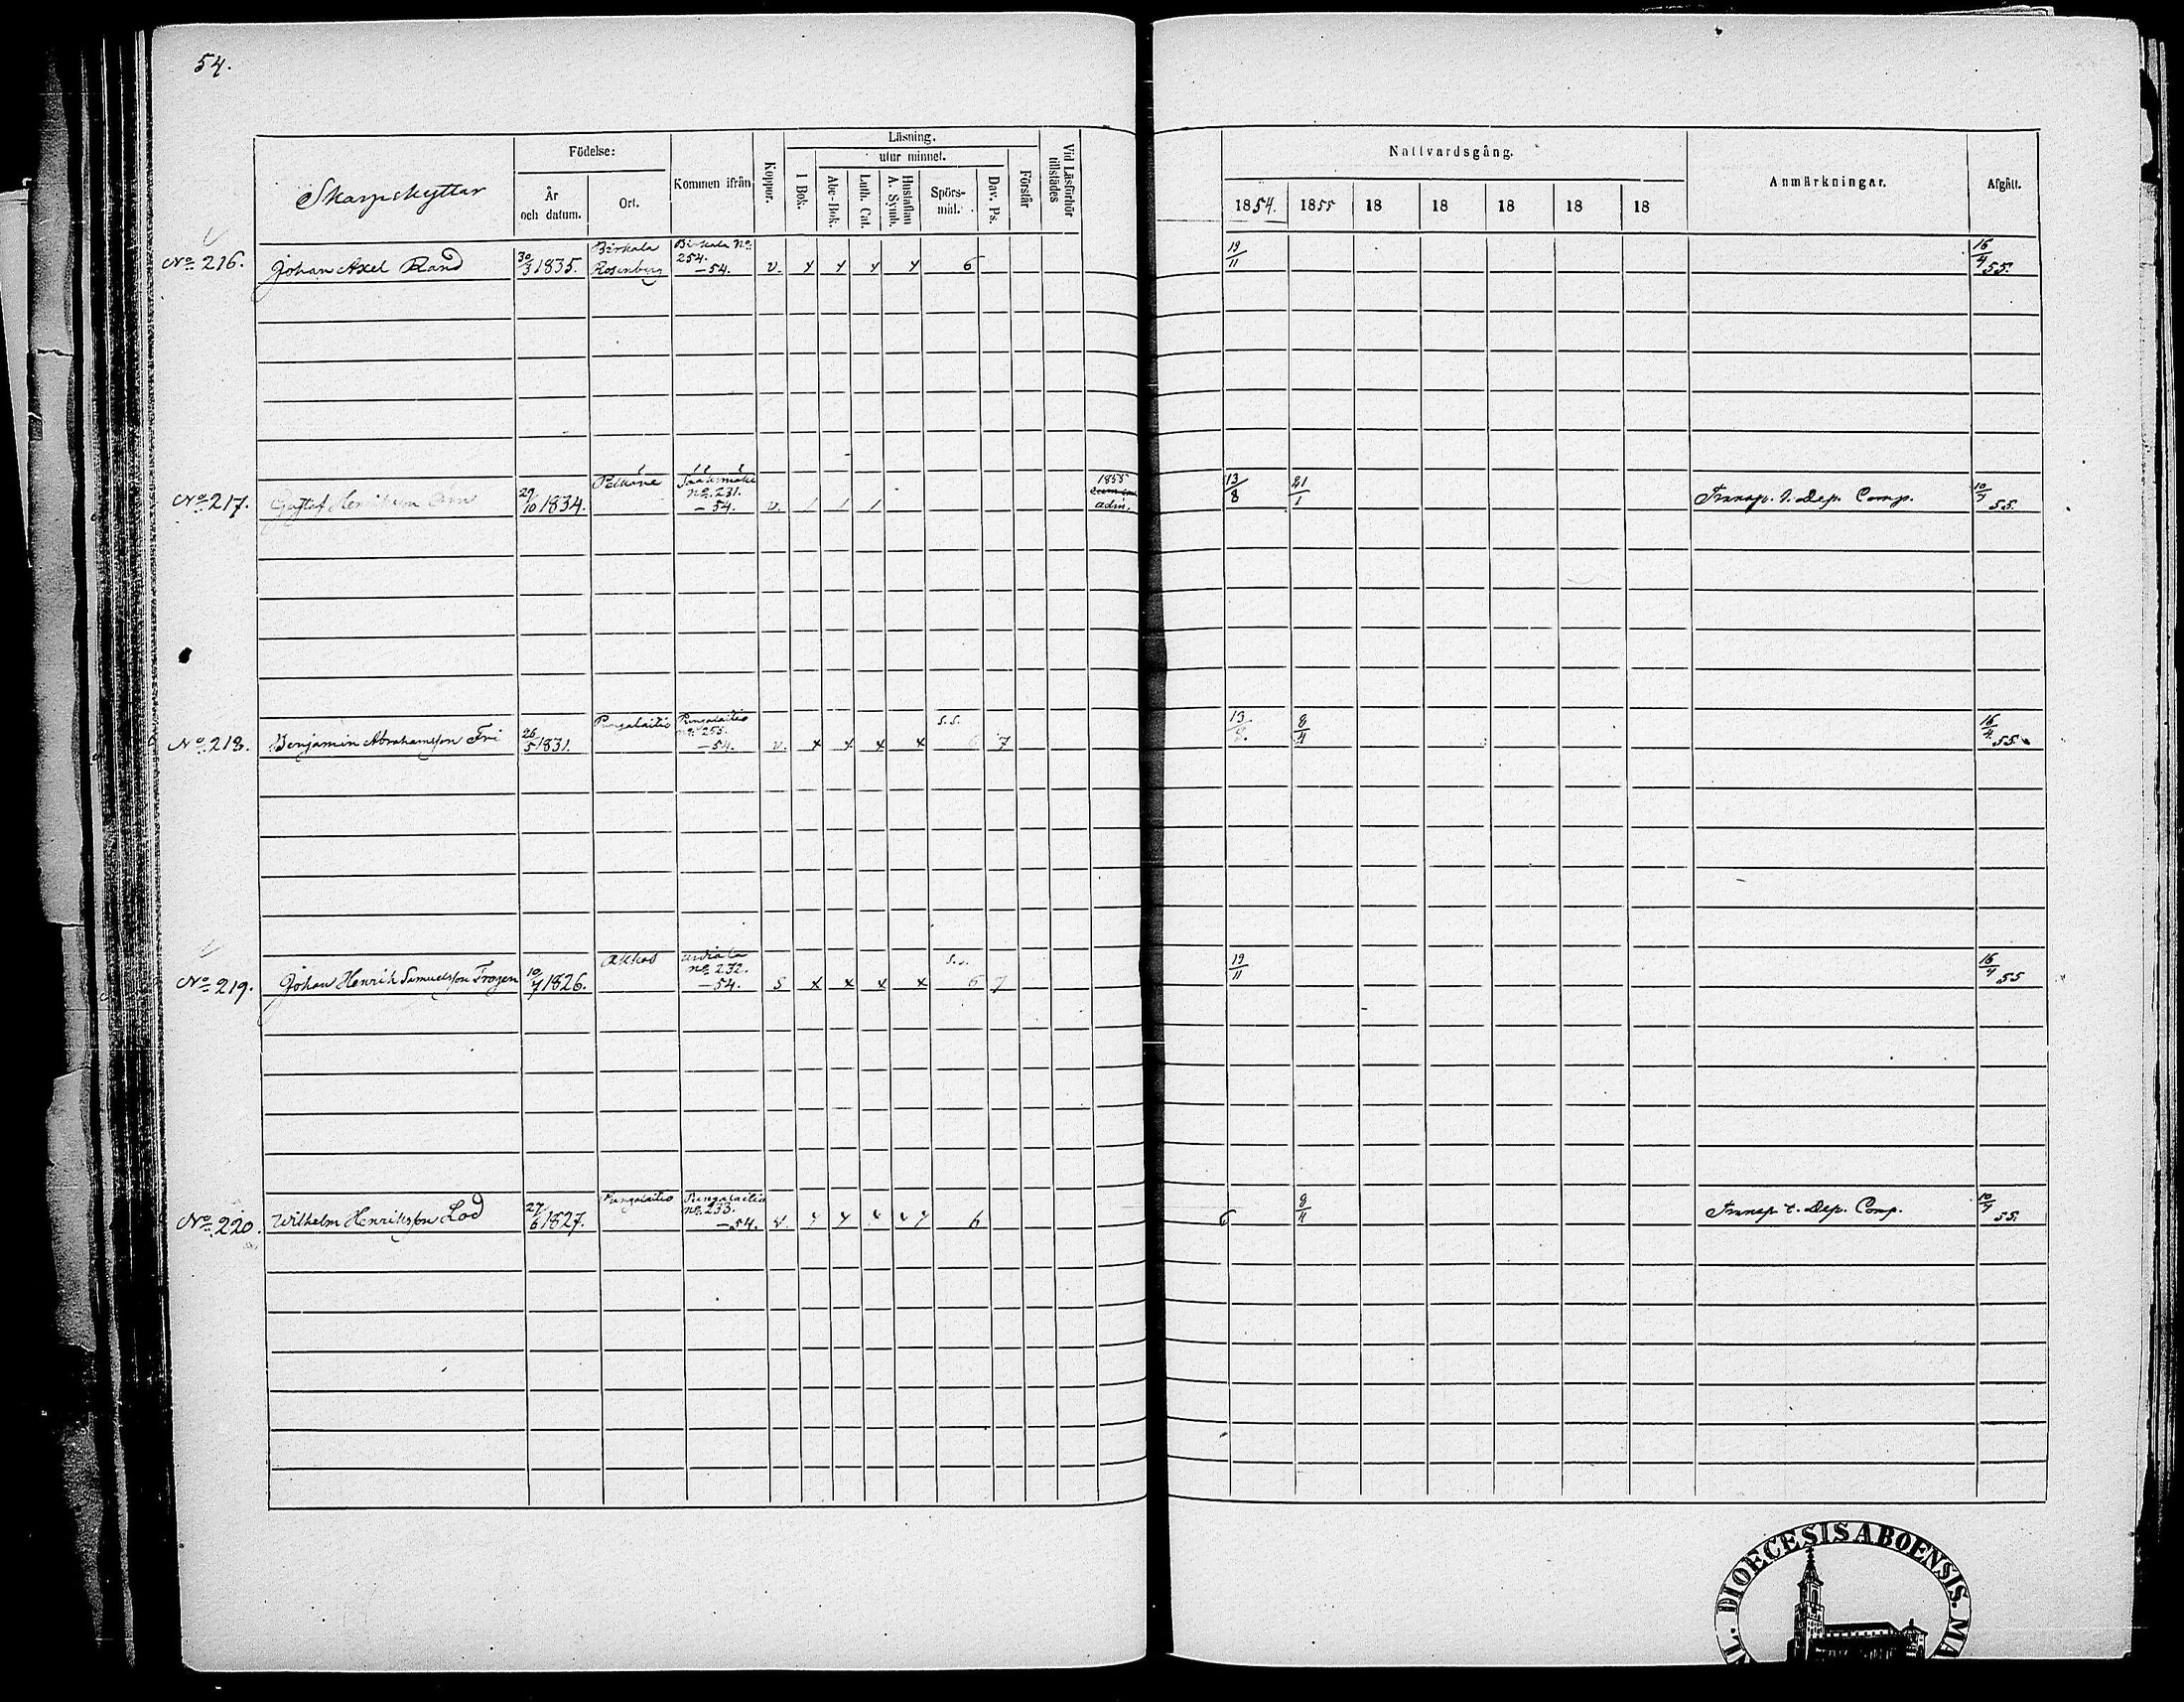 54.
Skarpskyttar
Födelse:
År och datum.
Ort.
Kommen ifrån
Koppor.
Läsning.
I Bok.
utur minnet.
Abc-Bok.
Luth. Cat.
Hustaflan A. Symb.
Spörs-mål.
Dav. Ps.
Förstår
Vid Läsförhör tillstädes
Nattvardsgång.
1854. 1855 18 18 18 18 18
Anmärkningar.
Afgått.
No 216. Johan Axel Rand 30/3 1835. Birkala Rosenberg Birkala No 254. —54. v. 6 19/11 16/4 55.
No 217. Gustaf Henriksson 29/10 1834. Pelkäne Sääksmäki No. 231. —54. v. 1855 adm. 13/8 21/1 Transp. t. Dep. Comp. 10/7 55.
No 218. Benjamin Abrahamsson Fri 26/5 1831. Pungalaitio Pungalaitio No. 255. —54. v. x x x x s.s. 7 13/8. 8/4 16/4 55.
No 219. Johan Henrik Samuelsson Trogen 10/7 1826. Akkas Urdiala No. 232. —54. s x x x x s.s. 6 7 19/11 16/4 55
No 220. Wilhelm Henriksson Lod 27/6 1827. Pungalaitio Pungalaitio No. 233. —54. v. 6 8/4 Transp t. Dep. Comp. 10/7 55.
DIOECESIS ABOENSIS. MA